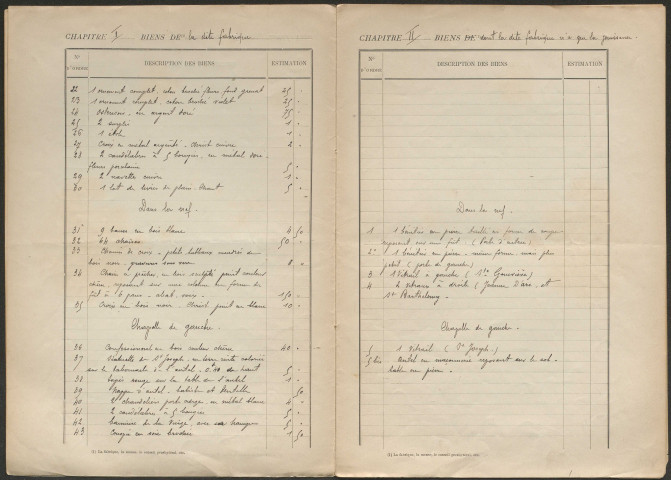 CHAPITRE I BIENS DE la dite fabrique
Nos D'ORDRE DESCRIPTION DES BIENS ESTIMATION
22 1 ornement complet, velours fond grenat 25 "
23 1 ornement complet, velours violet 25 "
24 Ostensoir en argent doré 75 "
25 2 surplis 1 "
26 1 étole 1 "
27 Croix en métal argenté - Christ cuivre 2 "
28 2 candélabres à 5 bougies, en métal doré
fleurs porcelaine 5 "
29 2 navettes cuivre 1 "
30 1 lot de livres de plain-chant 5 "
Dans la nef.
31 9 bancs en bois blanc 4 50
32 64 chaises 50 "
33 Chemin de croix - petits tableaux
bois noir - gravures sous verre 8 "
34 Chaire à prêcher, en bois sculpté peint couleur
chêne, reposant sur une colonne en forme de
fût à 6 pans - abat-voix - 150 "
35 Croix en bois noir - Christ peint en blanc 10 "
Chapelle de gauche.
36 Confessionnal en bois couleur chêne 40 "
37 Statuette de St Joseph, en terre cuite coloriée
sur le tabernacle de l'autel - 0m40 de haut 5 "
38 Tapis rouge sur la table de l'autel 1 "
39 Nappe d'autel - dentelle " 50
40 chandeliers porte cierge, en métal blanc 4 "
41 2 candélabres à 5 bougies 5 "
42 Bannière de la Vierge, avec sa hampe 5 "
43 en soie brodée 1 50
(1) La fabrique, la mense, le conseil presbytéral, etc.
CHAPITRE II BIENS DE dont la dite fabrique n'a que la jouissance.
Nos D'ORDRE DESCRIPTION DES BIENS ESTIMATION
Dans la nef.
1 1 bénitier en pierre taillée en forme de
reposant sur un fût (Porte d'entrée)
2 1 bénitier en pierre - même forme mais plus
petit (porte de gauche)
3 1 Vitrail à gauche (Ste Geneviève)
4 2 vitraux à droite (Jeanne d'Arc et
St Barthélemy)
Chapelle de gauche.
5 1 Vitrail (St Joseph)
5 bis Autel en maçonnerie reposant sur le sol
table en pierre.
(1) La fabrique, la mense, le conseil presbytéral, etc.